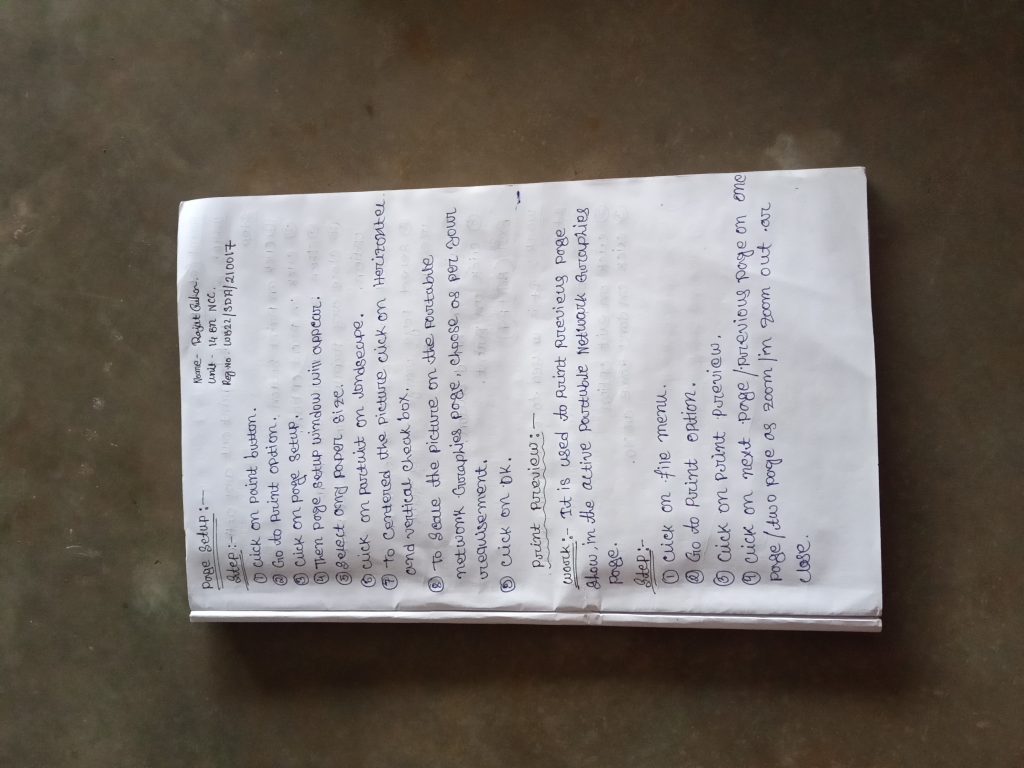 Name- Rajit Guha
Unit- 14 BN NCC.
Reg.no WB22/SDA/210017
page setup:-
Step:-
① click on paint button.
② Go to Print option.
③ Click on page setup.
④ Then page setup window will appear.
⑤ Select any paper size.
⑥ Click on portrit on landscape.
⑦ To Centered the picture click on Horizontal
and vertical cheak box.
⑧ To Scale the picture on the portable
network Graphies page, choose as per your
requisement.
⑨ click on OK.
print preview:-
work:- It is used to print previous page
show, in the active portuble Network Graphies
page.
Step:-
① Click on file menu.
② Go to Print option.
③ Click on print preview.
④ Click on next page/previous page on one
page/two page as zoom/in zoom out .or
close.